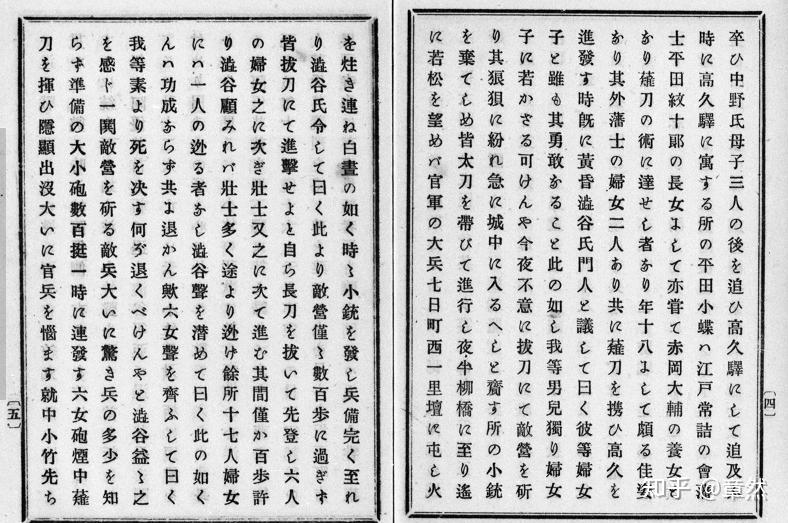 卒ひ中野氏母子三人の後を追ひ高久驛にして追及
時に高久驛に寓する所の平田小蝶ハ江戸常詰の會
士平田紋十郎の長女よして亦甞て赤岡大輔の養女
なり薙刀の術に達せし者なり年十八よして頗る佳
なり其外藩士の婦女二人あり共に薙刀を携ひ高久を
進發す時既に黃昏澁谷氏門人と議して曰く彼等婦女
子と雖も其勇敢なること此の如し我等男兒獨り婦女
子に若かざる可けんや今夜不意に拔刀にて敵營を斫
り其狼狽に紛れ急に城中に入るへしと齎す所の小銃
を棄てしめ皆太刀を帶びて進行し夜半柳橋に至り遙
に若松を望めバ官軍の大兵七日町西一里壇に屯し火
四
を炷き連ね白晝の如く時々小銃を發し兵備完く至れ
り澁谷氏令して曰く此より敵營僅々數百歩に過ぎず
皆拔刀にて進擊せよと自ら長刀を拔いて先登し六人
の婦女之に次ぎ壯士又之に次て進む其間僅か百歩許
り澁谷顧みれバ壯士多く途より迯け餘所十七人婦女
にハ一人の迯る者なし澁谷聲を潜めて曰く此の如く
んハ功成ならず共よ退かん歟六女聲を齊ふして曰く
我等素より死を決す何ぞ退くべけんやと澁谷益々之
を感じ一鬨敵營を斫る敵兵大いに驚き兵の多少を知
らず準備の大小砲數百挺一時に連發す六女砲煙中薙
刀を揮ひ隱顯出沒大いに官兵を惱ます就中小竹先ち
五
知乎 @章然